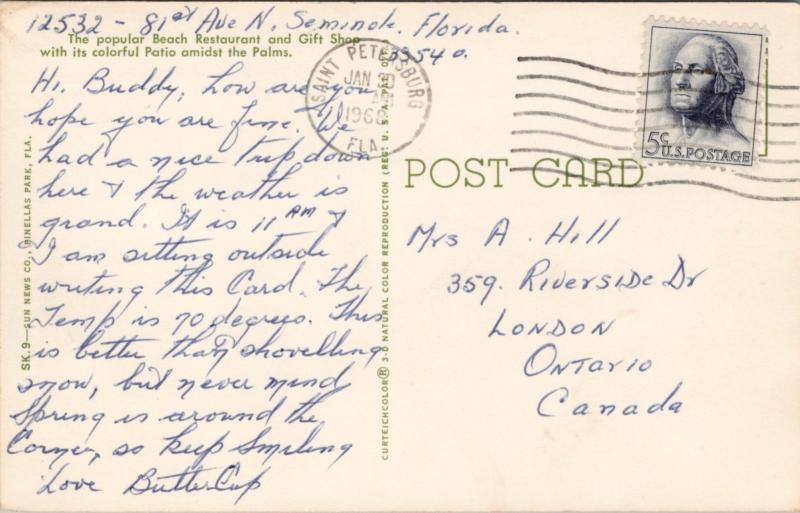 12532 - 81st Ave N. Seminole. Florida.
33540.
The popular Beach Restaurant and Gift Shop
with its colorful Patio amidst the Palms.
Hi. Buddy, how are you
hope you are fine. We
had a nice trip down
here & the weather is
grand. It is 11 AM &
I am sitting outside
writing this Card. The
Temp is 70 degrees. This
is better than shovelling
snow, but never mind
Spring is around the
Corner, so keep smiling
Love ButterCup
SK.9—SUN NEWS CO., PINELLAS PARK, FLA.
CURTEICHCOLOR® 3-D NATURAL COLOR REPRODUCTION (REG. U.S.A. PAT. OFF.)
SAINT PETERSBURG
JAN
AM
FLA.
5c
U.S. POSTAGE
POST CARD
Mrs A. Hill
359. Riverside Dr
London
Ontario
Canada